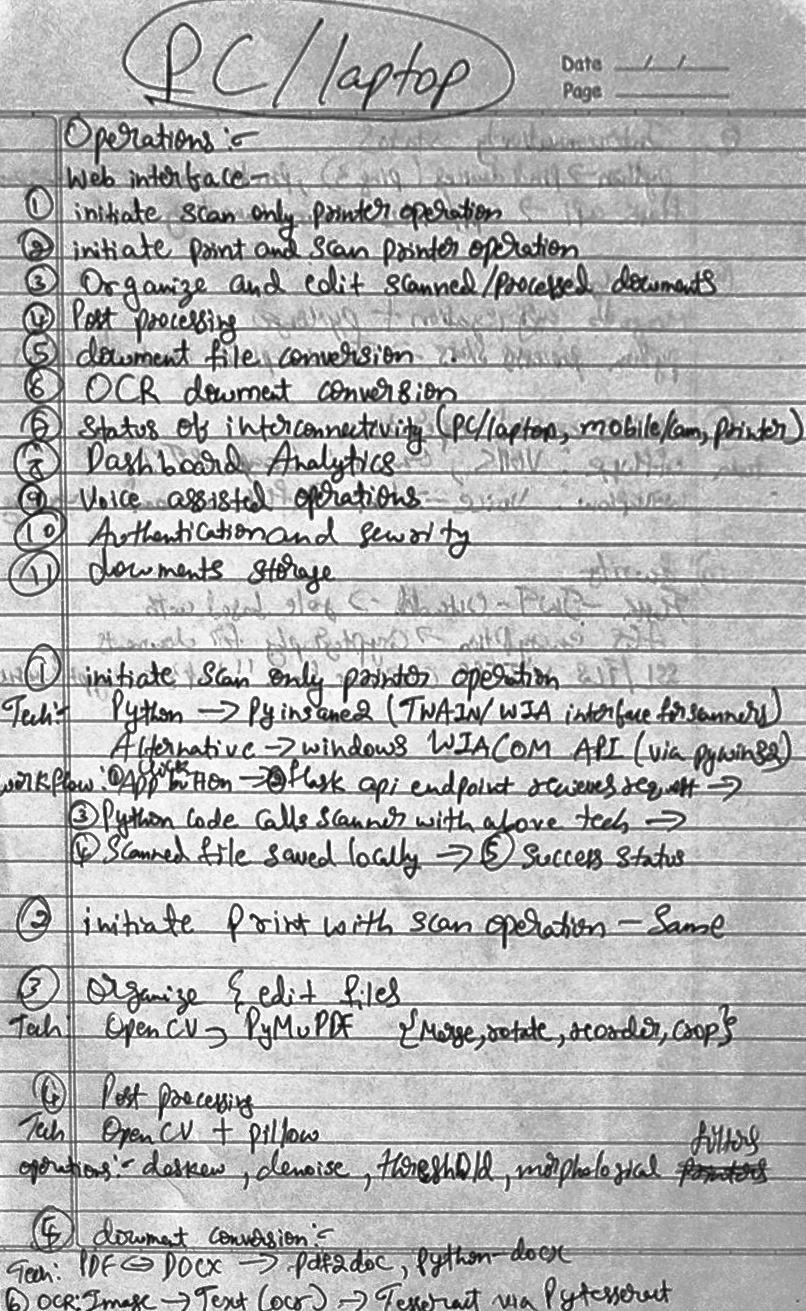 PC/laptop
Date / /
Page
Operations :-
Web interface -
① initiate scan only printer operation
② initiate print and scan printer operation
③ Organize and edit scanned/processed documents
④ Post processing
⑤ document file conversion
⑥ OCR document conversion
⑦ Status of interconnectivity (PC/laptop, mobile/cam, printer)
⑧ Dashboard Analytics
⑨ Voice assisted operations
⑩ Authentication and security
⑪ documents storage
① initiate scan only printer operation
Tech:- Python → Pyinsane2 (TWAIN/WIA interface for scanners)
Alternative → windows WIACOM API (via pywin32)
workflow: ① App click button → ② flask api endpoint receives request →
③ Python code calls scanner with above tech →
④ Scanned file saved locally → ⑤ Success status
② initiate Print with scan operation - Same
③ Organize & edit files
Tech: OpenCV → PyMuPDF {Merge, rotate, reorder, crop}
④ Post processing
Tech OpenCV + pillow
operations:- deskew, denoise, threshold, morphological filters
⑤ document conversion :-
Tech: PDF ⇔ DOCX → pdf2doc, python-docx
⑥ OCR: Image → Text (ocr) → Tesseract via Pytesseract